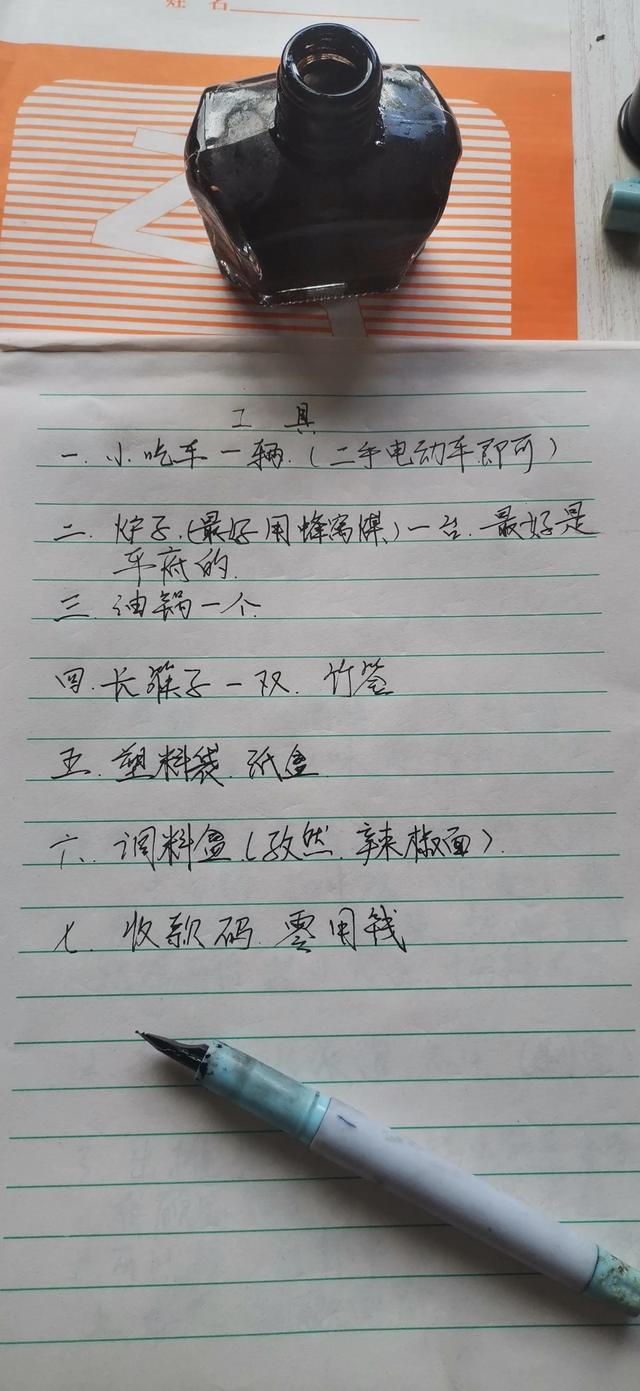 姓名
工具
一.小吃车一辆.(二手电动车即可)
二.炉子.(最好用蜂窝煤)一台.最好是
车府的.
三.油锅一个.
四.长筷子一双.竹签
五.塑料袋.纸盒
六、调料盒.(孜然.辣椒面).
七.收款码.零用钱